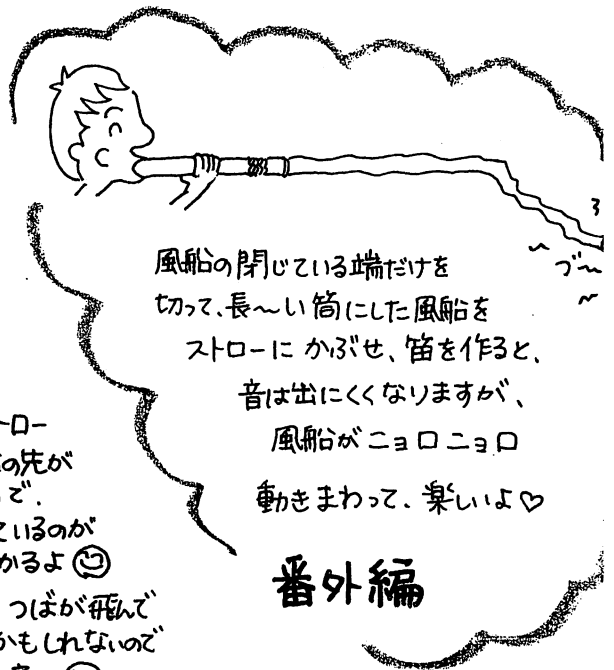 風船の閉じている端だけを
切って、長〜い筒にした風船を
ストローに かぶせ、笛を作ると、
音は出にくくなりますが、
風船がニョロニョロ
動きまわって、楽しいよ♡
番外編
づ〜
ロー
の先が
で、
ているのが
かるよ
つばが飛んで
かもしれないので